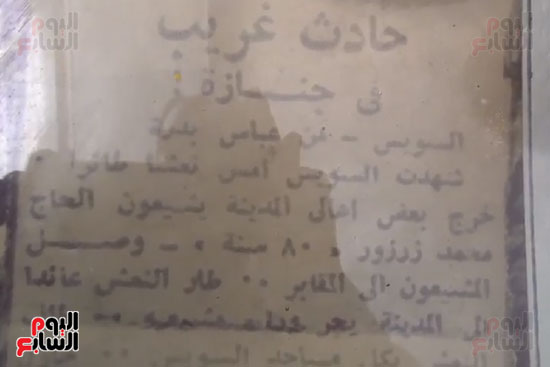 حادث غريب
فى جنازة :
السويس - من عباس
شهدت السويس أمس نعشا طائرا .
خرج بعض اهالى المدينة يشيعون الحاج
محمد زرزور « ٨٠ سنة » - وصل
المشيعون الى المقابر .. طار النعش عائدا
الى المدينة يجر
بكل مساجد السويس ..
اليوم السابع
اليوم السابع
اليوم السابع
اليوم السابع